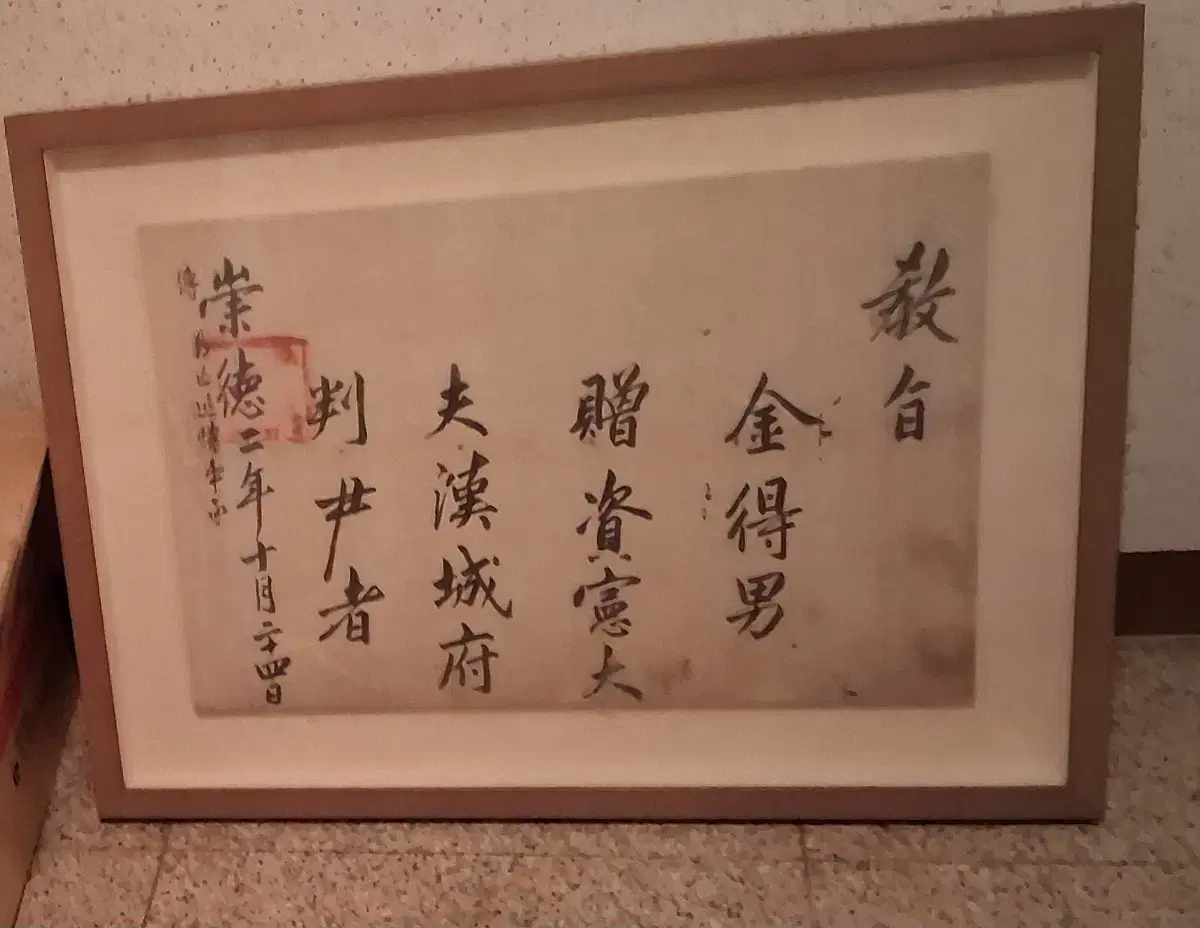 敎旨
金得男
贈資憲大
夫漢城府
判尹者
崇德二年十月二十四日